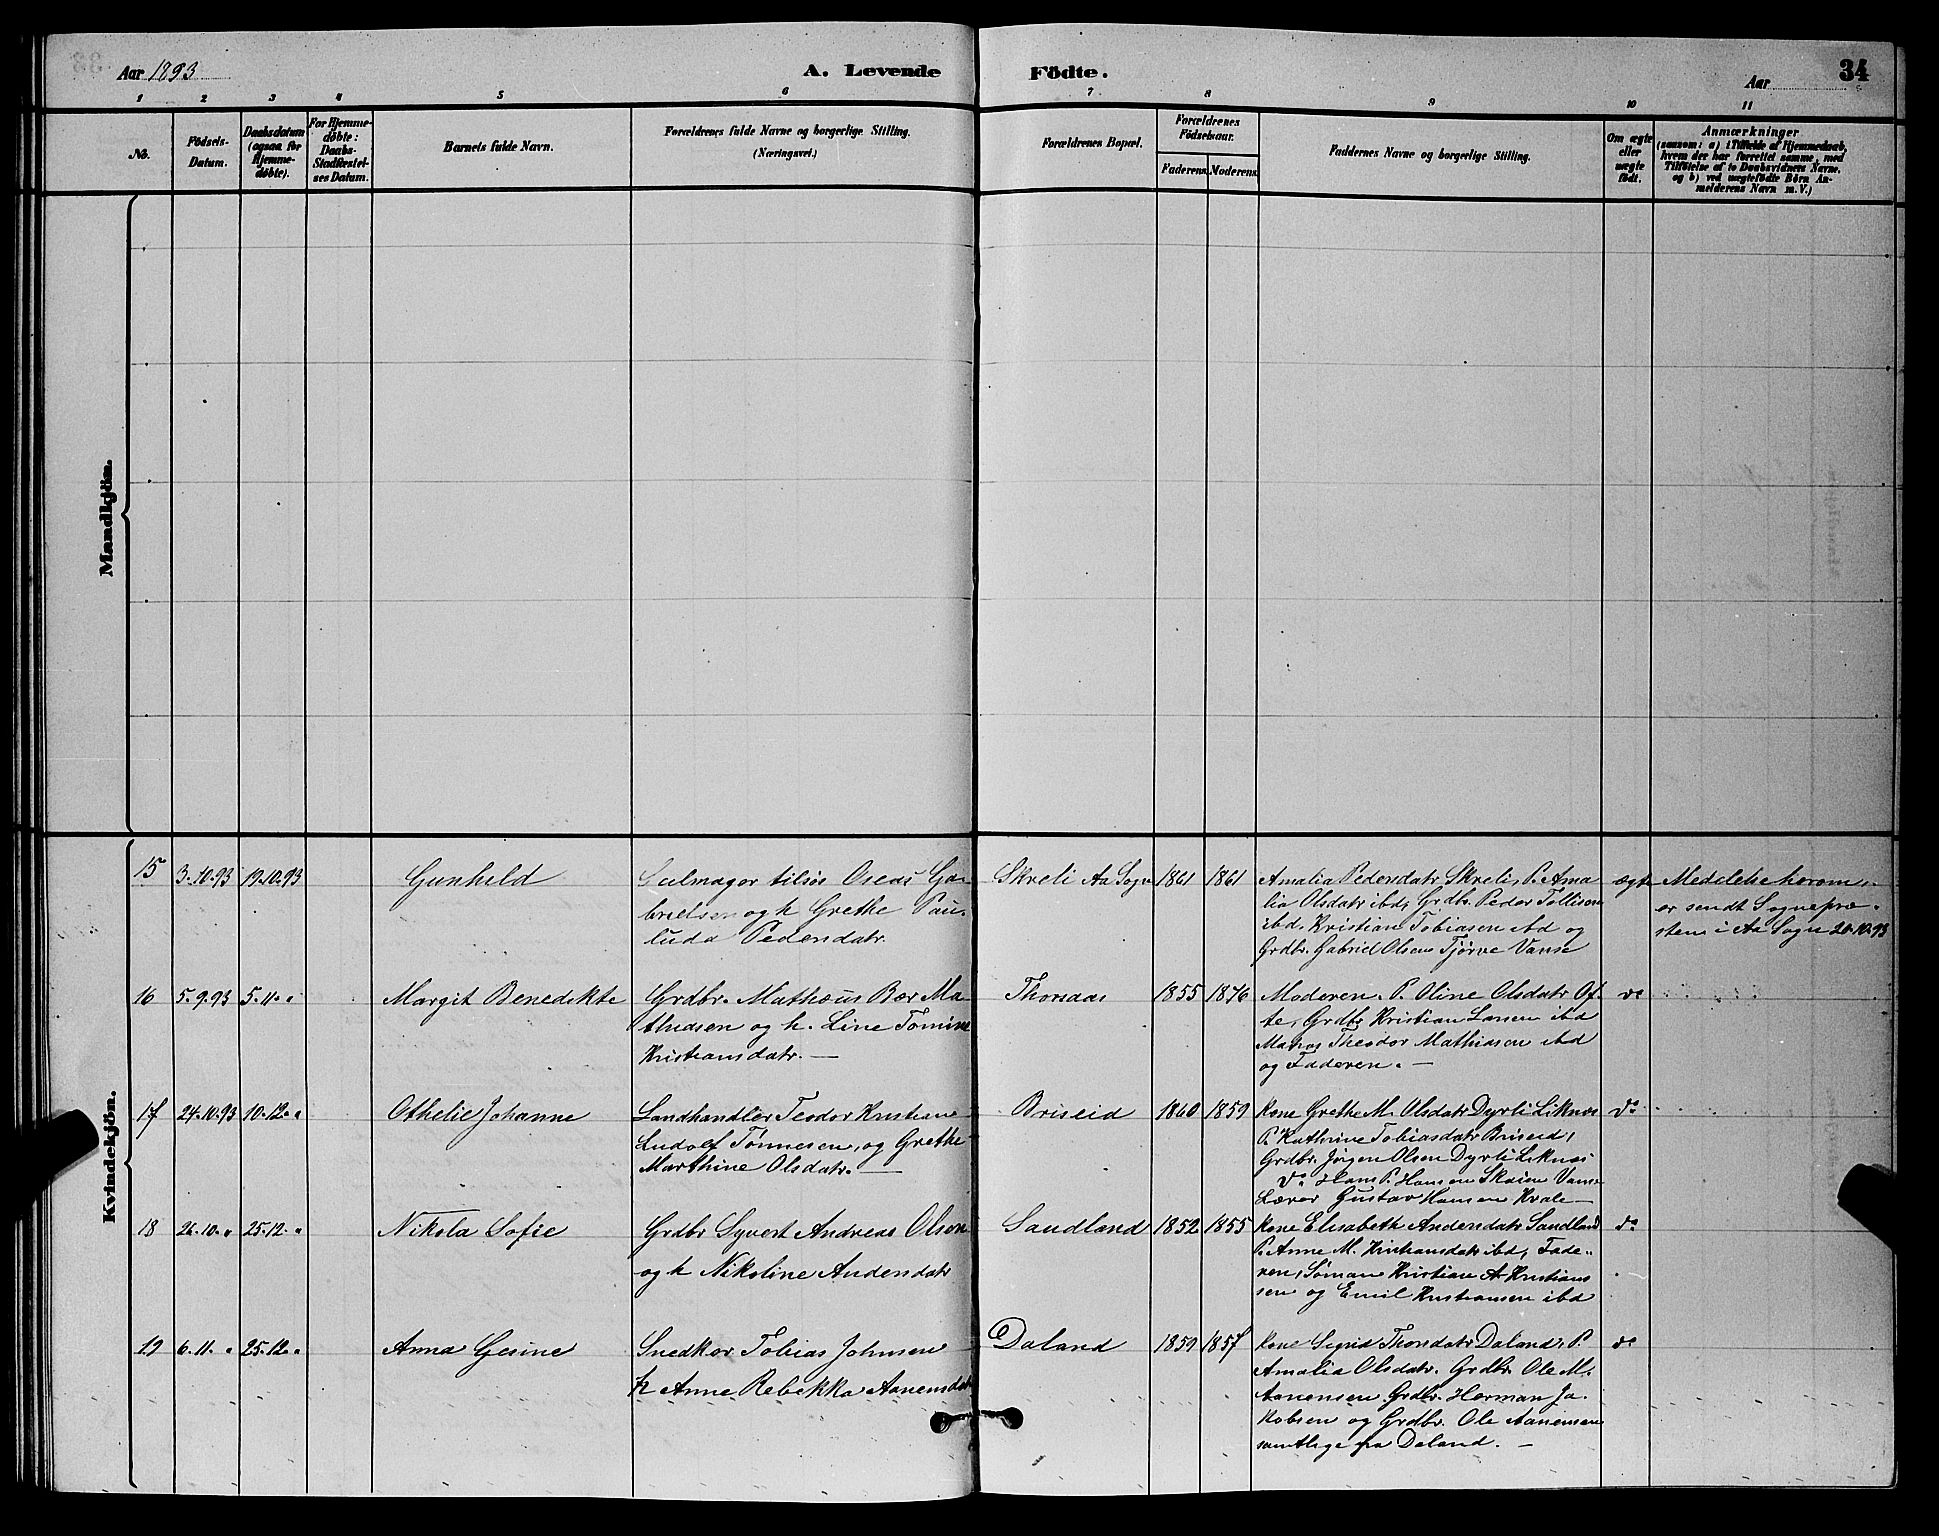 Aar 1893
A. Levende
Födte.
Aar
34
1 2 3 4 5 6 7 8 9 10 11
No.
Födsels-
Datum.
Daabsdatum
(ogsaa for
Hjemme-
døbte).
For Hjemme-
døbte:
Daabs-
Stadfæstel-
ses Datum.
Barnets fulde Navn.
Forældrenes fulde Navne og borgerlige Stilling.
(Næringsvei.)
Forældrenes Bopæl.
Forældrenes
Födselsaar.
Faderens. Moderens.
Faddernes Navne og borgerlige Stilling.
Om ægte
eller
uægte
födt.
Anmærkninger
(saasom: a) i Tilfælde af Hjemmedaab,
hvem der har forrettet samme, med
Tilföielse af to Daabsvidners Navne.
og b) ved uægtefödte Börn An-
melderens Navn m. V.)
Mandkjön.
Kvindekjön.
15
3.10.93
19.10.93
Gunhild
tilsös Oseas Ga-
brielsen og h. Grethe Pau-
luda Pedersdatr.
Skreli Aa Sogn
1861
1861
Amalia Pedersdatr Skreli, P. Ama
lia Olsdatr ibd, Grdbr. Peder Tollisen
ibd, Kristian Tobiasen ibd og
Grdbr. Gabriel Olsen Tjörve Vanse
ægte
Meddelelse herom
er sendt Sognepræ-
sten i Aa Sogn 20.10.93
16
5.9.93
5.11. "
Margit Benedikte
Grdbr. Mathæus Bær Ma
thiasen og h. Line Tomine
Kristiansdatr. —
Thorsaas
1855
1876
Moderen. P. Oline Olsdatr Of-
te, Grdbr Kristian Larsen ibd
Matros Theodor Mathiasen ibd
og Faderen. —
do
17
24.10.93
10.12. "
Othelie Johanne
Landhandler Teodor Kristian
Ludolf Tönnesen, og Grethe
Marthine Olsdatr. —
Briseid
1860
1859
Kone Grethe M. Olsdatr Dyrli Liknes
P. Kathrine Tobiasdatr Briseid,
Grdbr. Jörgen Olsen Dyrli Liknes
do Hans P. Hansen Skeien Vanse
Lærer Gustav Hansen Kvale —
do
18
26.10. "
25.12. "
Nikola Sofie
Grdbr Syvert Andreas Olsen
og h Nikoline Andersdatr
Sandland
1852
1855
Kone Elisabeth Andersdatr Sandland
P. Anne M. Kristiansdatr ibd, Fade-
ren, Sömand Kristian A Kristian
sen og Emil Kristiansen ibd
do
19
6.11. "
25.12. "
Anna Gesine
Snedker Tobias Johnsen
h Anne Rebekka Aanensdatr
Daland
1859
1857
Kone Sigrid Thorsdatr Daland, P.
Amalia Olsdatr. Grdbr. Ole M.
Aanensen Grdbr. Herman Ja-
kobsen og Grdbr. Ole Aanensen
samtlige fra Daland. —
do